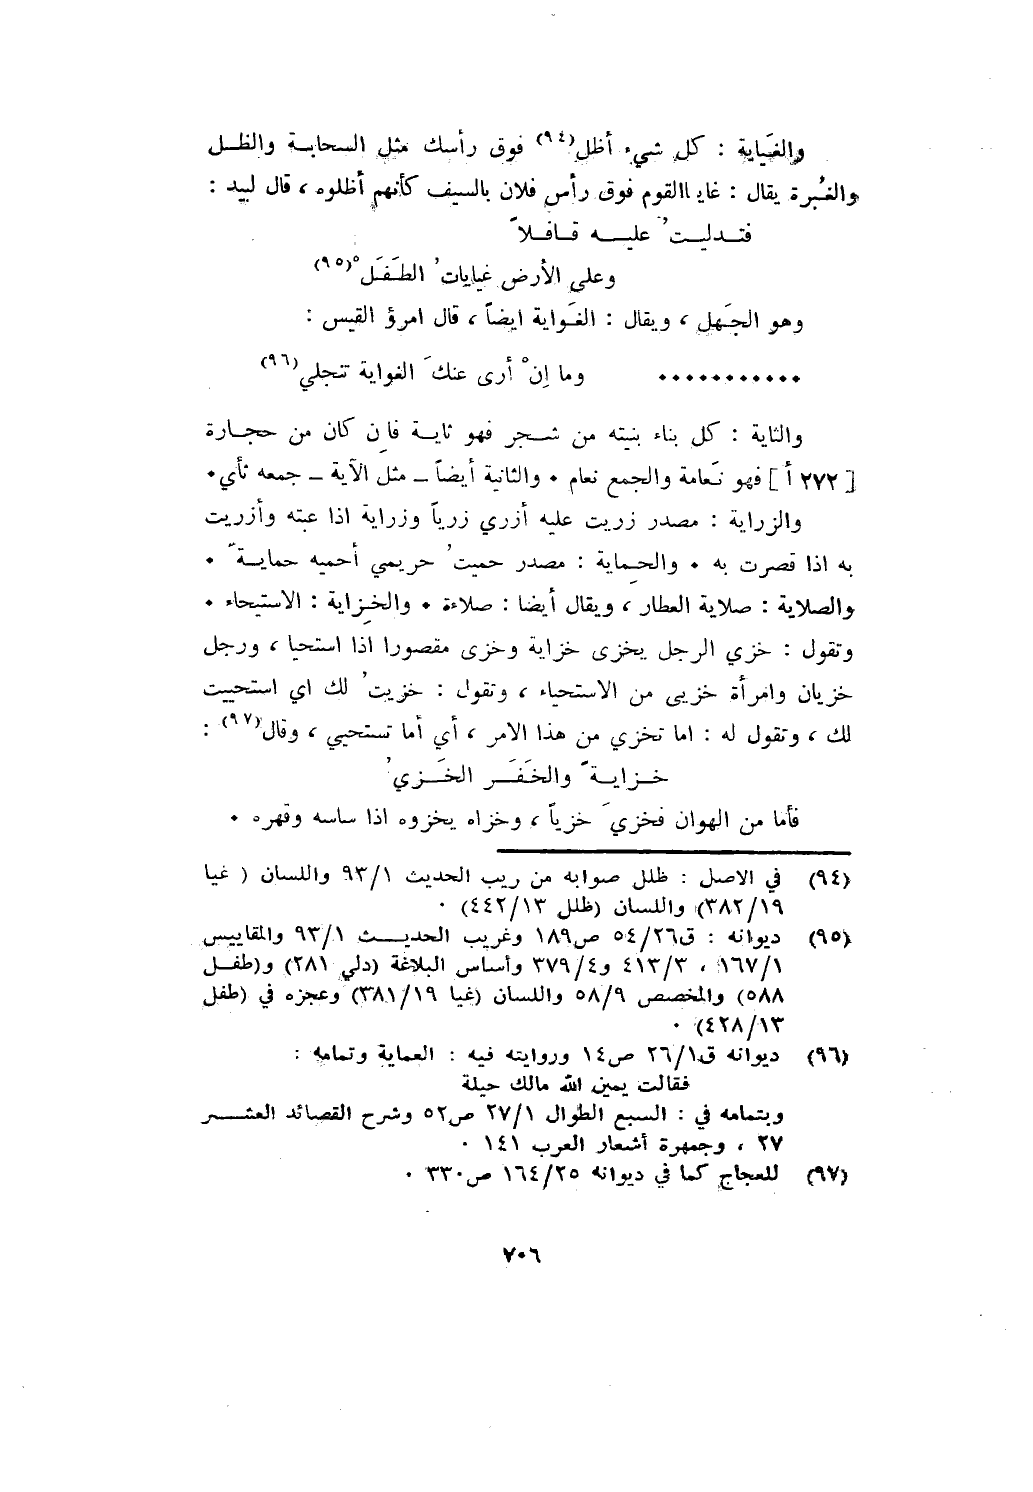 والغَيَاية : كل شيء أظل(٩٤) فوق رأسك مثل السحابة والظل
والغُبرة يقال : غايا القوم فوق رأس فلان بالسيف كأنهم أظلوه ، قال لبيد :
فتدليتُ عليه قافلاً
وعلى الأرض غياياتُ الطَفَلْ(٩٥)
وهو الجَهل ، ويقال : الغَواية ايضاً ، قال امرؤ القيس :
........... وما إنْ أرى عنكَ الغواية تنجلي(٩٦)
والثاية : كل بناء بنيته من شجر فهو ثاية فان كان من حجارة
[ ٢٧٢ أ ] فهو نَعامة والجمع نعام . والثانية أيضاً ــ مثل الآية ــ جمعه ثأي .
والزراية : مصدر زريت عليه أزري زرياً وزراية اذا عبته وأزريت
به اذا قصرت به . والحِماية : مصدر حميتُ حريمي أحميه حمايةً .
والصلاية : صلاية العطار ، ويقال أيضا : صلاءة . والخِزاية : الاستيحاء .
وتقول : خزي الرجل يخزى خزاية وخزى مقصورا اذا استحيا ، ورجل
خزيان وامرأة خزيى من الاستحياء ، وتقول : خزيتُ لك اي استحييت
لك ، وتقول له : اما تخزي من هذا الامر ، أي أما تستحيي ، وقال(٩٧) :
خزايةً والخَفَر الخَزيُ
فأما من الهوان فخزيَ خزياً ، وخزاه يخزوه اذا ساسه وقهره .
(٩٤) في الاصل : ظلل صوابه من ريب الحديث ٩٣/١ واللسان ( غيا
٣٨٢/١٩) واللسان (ظلل ٤٤٢/١٣) .
(٩٥) ديوانه : ق٥٤/٢٦ ص١٨٩ وغريب الحديث ٩٣/١ والمقاييس
١٦٧/١ ، ٤١٣/٣ و٣٧٩/٤ وأساس البلاغة (دلي ٢٨١) و(طفل
٥٨٨) والمخصص ٥٨/٩ واللسان (غيا ٣٨١/١٩) وعجزه في (طفل
٤٢٨/١٣) .
(٩٦) ديوانه ق٢٦/١ ص١٤ وروايته فيه : العماية وتمامه :
فقالت يمين الله مالك حيلة
وبتمامه في : السبع الطوال ٢٧/١ ص٥٢ وشرح القصائد العشر
٢٧ ، وجمهرة أشعار العرب ١٤١ .
(٩٧) للعجاج كما في ديوانه ١٦٤/٢٥ ص٣٣٠ .
٧٠٦